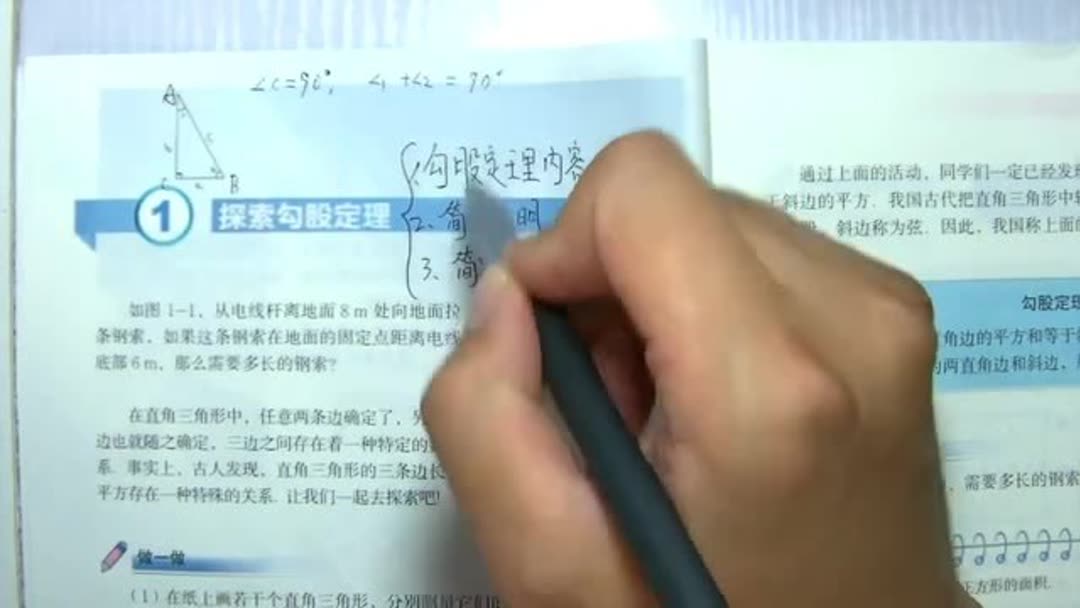 ∠C=90°, ∠1+∠2=90°
A
b
c
C
a
B
1、勾股定理内容
2、简 明
3、简
1 探索勾股定理
如图1-1，从电线杆离地面8m处向地面拉
条钢索，如果这条钢索在地面的固定点距离电线
底部6m，那么需要多长的钢索？
在直角三角形中，任意两条边确定了，另
边也就随之确定，三边之间存在着一种特定的
系．事实上，古人发现，直角三角形的三条边长
平方存在一种特殊的关系．让我们一起去探索吧！
做一做
（1）在纸上画若干个直角三角形，分别测量它们
通过上面的活动，同学们一定已经发
于斜边的平方．我国古代把直角三角形中
股，斜边称为弦．因此，我国称上面的
勾股定理
角边的平方和等于
两直角边和斜边，
，需要多长的钢索
正方形的面积．